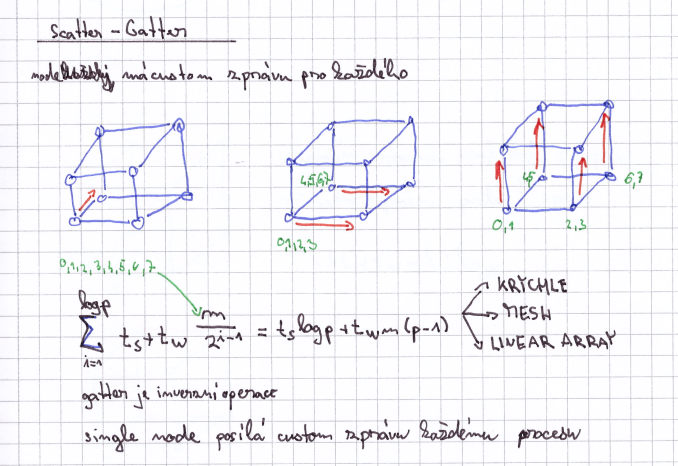 Scatter - Gatter
node má custom zprávu pro každého
4,5,6,7
0,1,2,3
4,5
6,7
0,1
2,3
0,1,2,3,4,5,6,7
log p
∑ t_s + t_w m / 2^{i-1} = t_s log p + t_w m (p-1)
i=1
KRYCHLE
MESH
LINEAR ARRAY
gatter je inverzní operace
single node posílá custom zprávu každému procesu